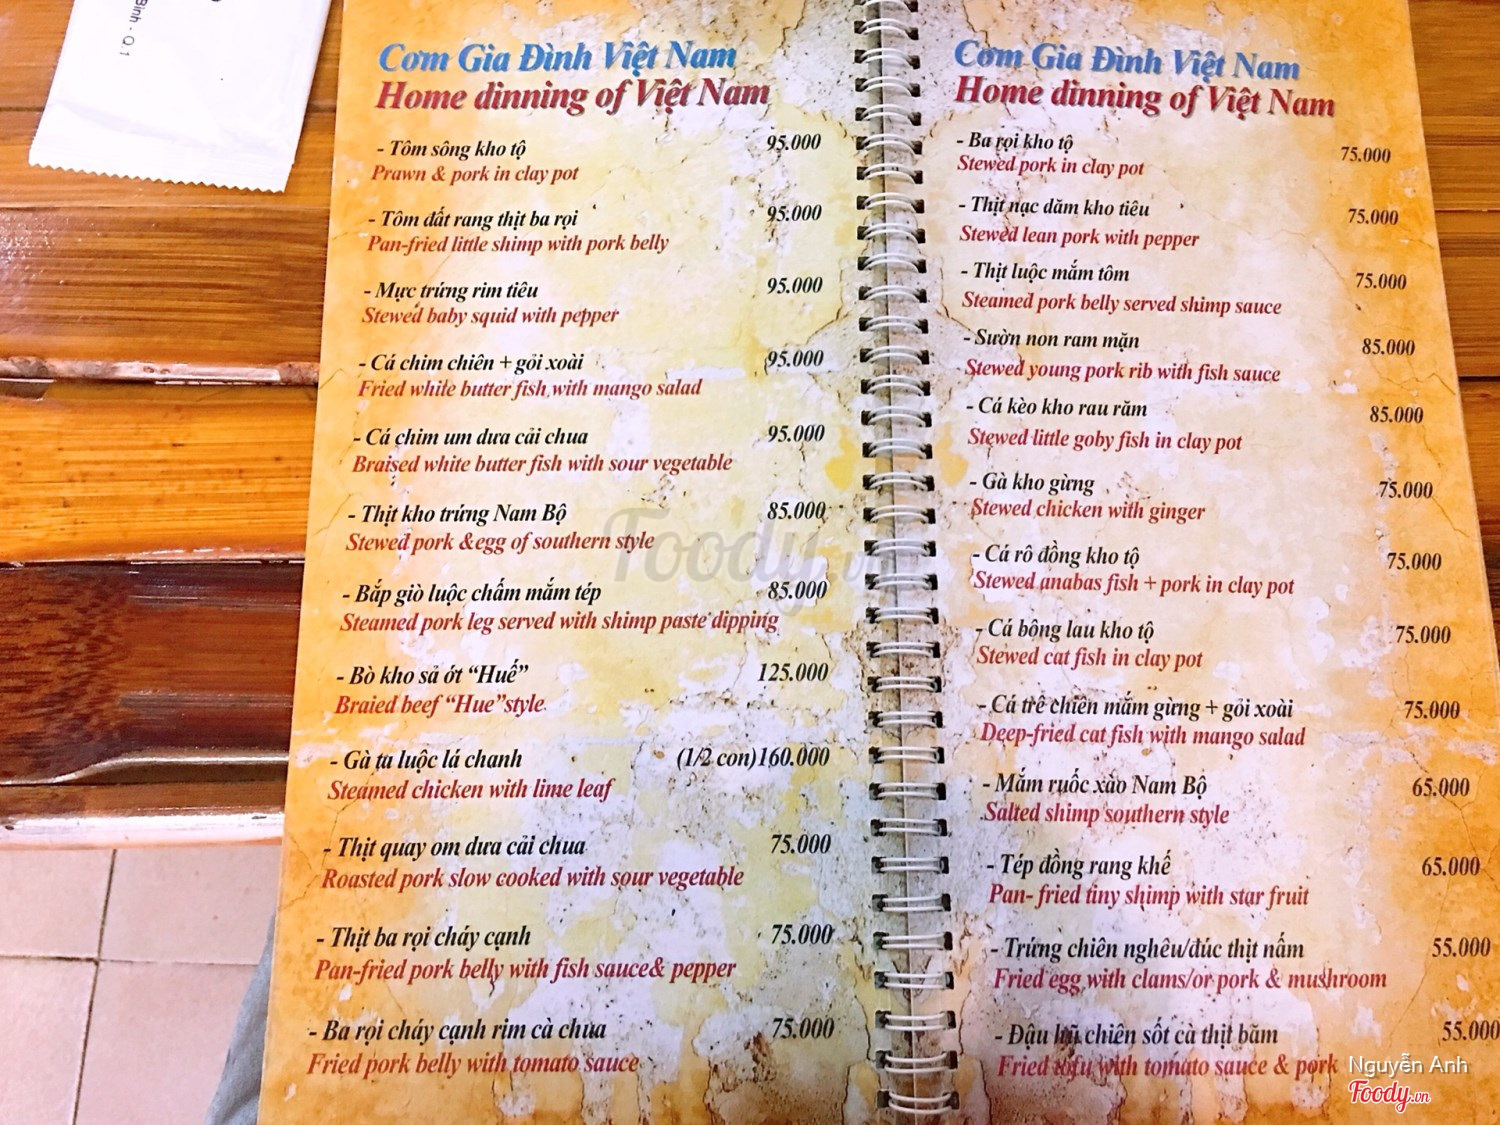 Bình - Q.1
Cơm Gia Đình Việt Nam
Home dinning of Việt Nam
- Tôm sông kho tộ 95.000
Prawn & pork in clay pot
- Tôm đất rang thịt ba rọi 95.000
Pan-fried little shimp with pork belly
- Mực trứng rim tiêu 95.000
Stewed baby squid with pepper
- Cá chim chiên + gỏi xoài 95.000
Fried white butter fish with mango salad
- Cá chim um dưa cải chua 95.000
Braised white butter fish with sour vegetable
- Thịt kho trứng Nam Bộ 85.000
Stewed pork &egg of southern style
- Bắp giò luộc chấm mắm tép 85.000
Steamed pork leg served with shimp paste dipping
- Bò kho sả ớt "Huế" 125.000
Braied beef "Hue"style
- Gà ta luộc lá chanh (1/2 con)160.000
Steamed chicken with lime leaf
- Thịt quay om dưa cải chua 75.000
Roasted pork slow cooked with sour vegetable
- Thịt ba rọi cháy cạnh 75.000
Pan-fried pork belly with fish sauce& pepper
- Ba rọi cháy cạnh rim cà chua 75.000
Fried pork belly with tomato sauce
Cơm Gia Đình Việt Nam
Home dinning of Việt Nam
- Ba rọi kho tộ 75.000
Stewed pork in clay pot
- Thịt nạc dăm kho tiêu 75.000
Stewed lean pork with pepper
- Thịt luộc mắm tôm 75.000
Steamed pork belly served shimp sauce
- Sườn non ram mặn 85.000
Stewed young pork rib with fish sauce
- Cá kèo kho rau răm 85.000
Stewed little goby fish in clay pot
- Gà kho gừng 75.000
Stewed chicken with ginger
- Cá rô đồng kho tộ 75.000
Stewed anabas fish + pork in clay pot
- Cá bông lau kho tộ 75.000
Stewed cat fish in clay pot
- Cá trê chiên mắm gừng + gỏi xoài 75.000
Deep-fried cat fish with mango salad
- Mắm ruốc xào Nam Bộ 65.000
Salted shimp southern style
- Tép đồng rang khế 65.000
Pan- fried tiny shimp with star fruit
- Trứng chiên nghêu/đúc thịt nấm 55.000
Fried egg with clams/or pork & mushroom
- Đậu hũ chiên sốt cà thịt băm 55.000
Fried tofu with tomato sauce & pork
Foody.vn
Nguyễn Anh
Foody.vn